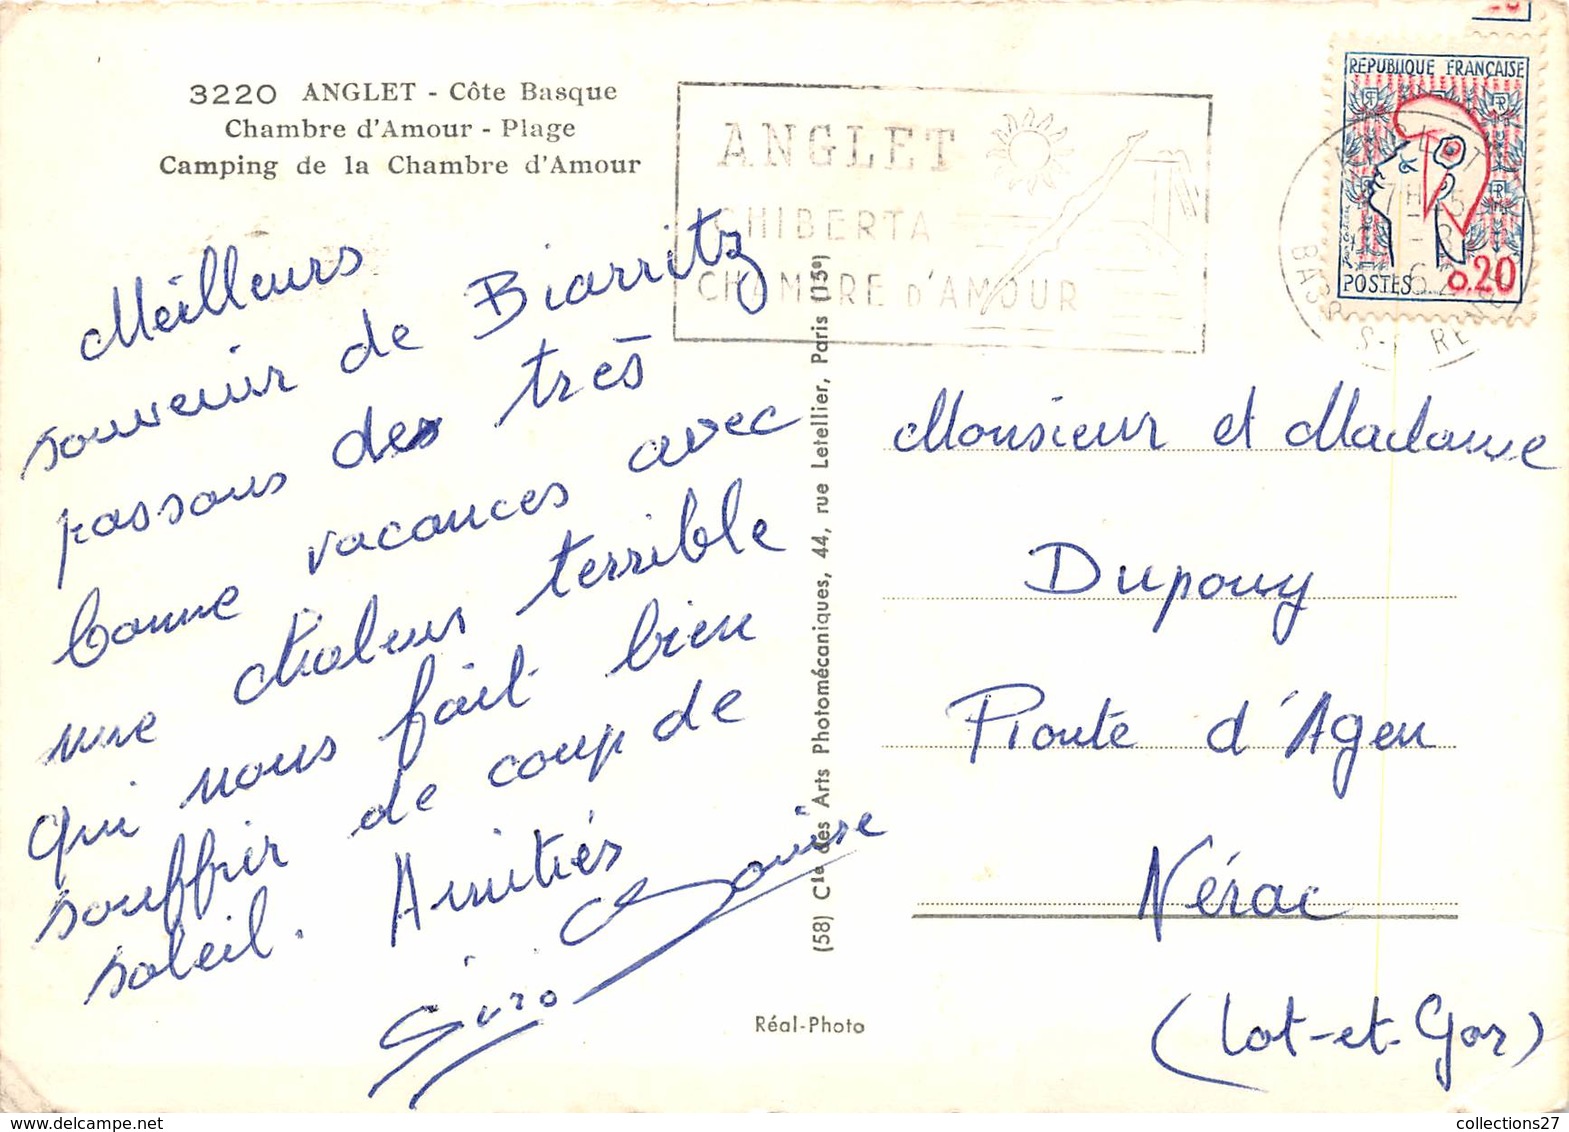 3220 ANGLET - Côte Basque
Chambre d'Amour - Plage
Camping de la Chambre d'Amour
ANGLET
CHIBERTA
CHAMBRE D'AMOUR
RÉPUBLIQUE FRANÇAISE
POSTES 0.20
Meilleurs
souvenir de Biarritz
passons des très
bonne vacances avec
une chaleur terrible
qui nous fait bien
souffrir de coup de
soleil. Amitiés
Louise
(58) Cie des Arts Photomécaniques, 44, rue Letellier, Paris (15e)
Réal-Photo
Monsieur et Madame
Dupouy
Route d'Agen
Nérac
(Lot-et-Gar)
collections27